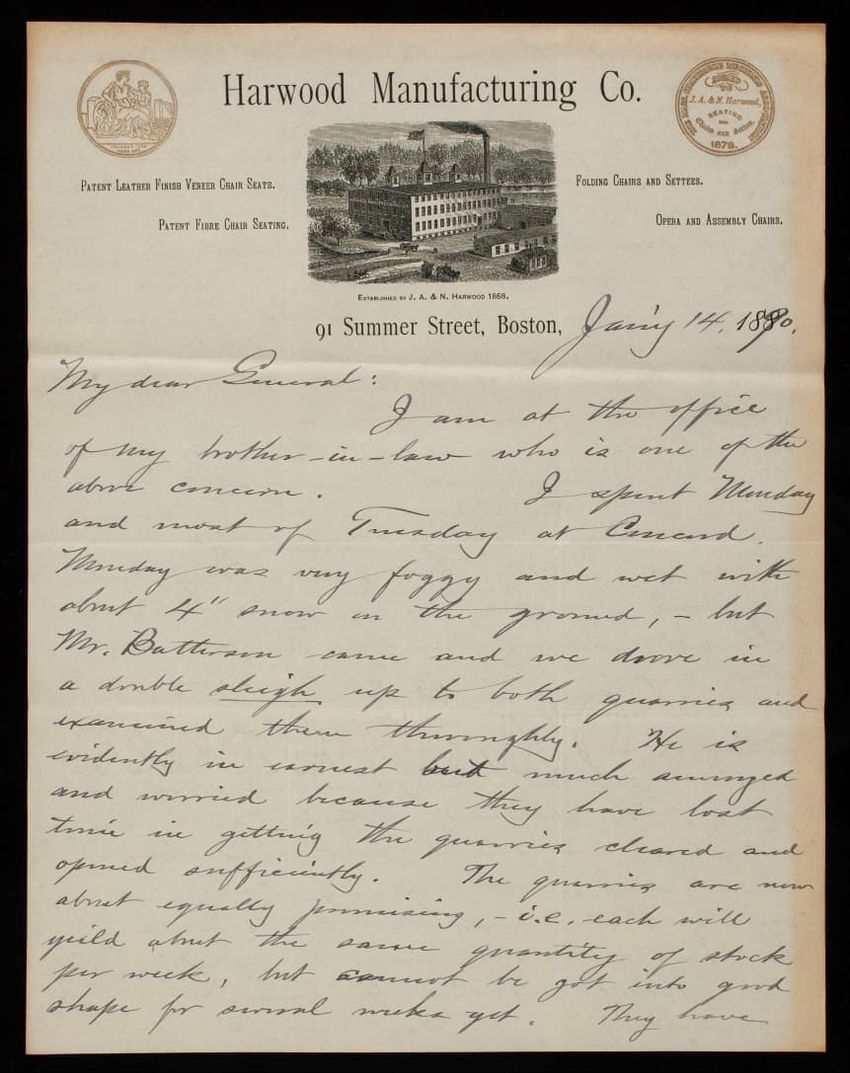 Harwood Manufacturing Co.
J. A. & N. Harwood,
SEATING
1878.
PATENT LEATHER FINISH VENEER CHAIR SEATS.
FOLDING CHAIRS AND SETTEES.
PATENT FIBRE CHAIR SEATING.
OPERA AND ASSEMBLY CHAIRS.
ESTABLISHED BY J. A. & N. HARWOOD 1868.
91 Summer Street, Boston, Jan'y 14, 1890.
My dear General:
I am at the office
of my brother-in-law who is one of the
above concern. I spent Monday
and most of Tuesday at Concord.
Monday was very foggy and wet with
about 4" snow on the ground, - but
Mr. Batterson came and we drove in
a double sleigh up to both quarries and
examined them thoroughly. He is
evidently in earnest but much annoyed
and worried because they have lost
time in getting the quarries cleared and
opened sufficiently. The quarries are now
about equally promising, - i.e. each will
yield about the same quantity of stock
per week, but cannot be got into good
shape for several weeks yet. They have